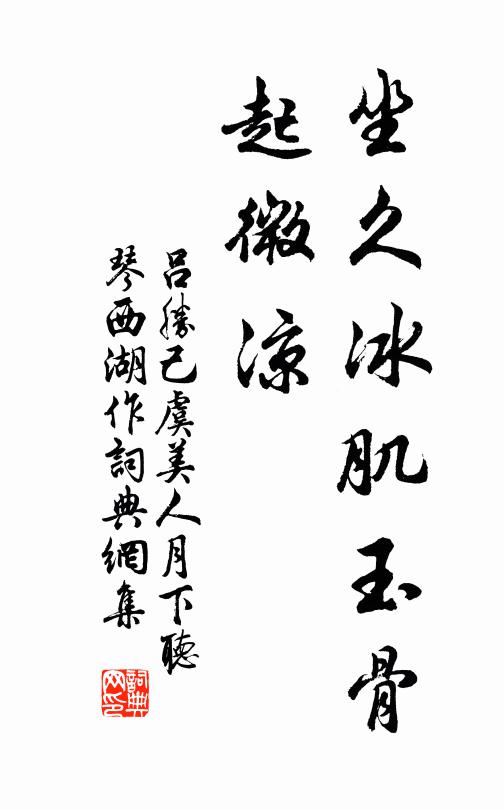 坐久冰肌玉骨
起微涼
呂勝己虞美人月下聽
琴西湖作詞典網集
詞典网印